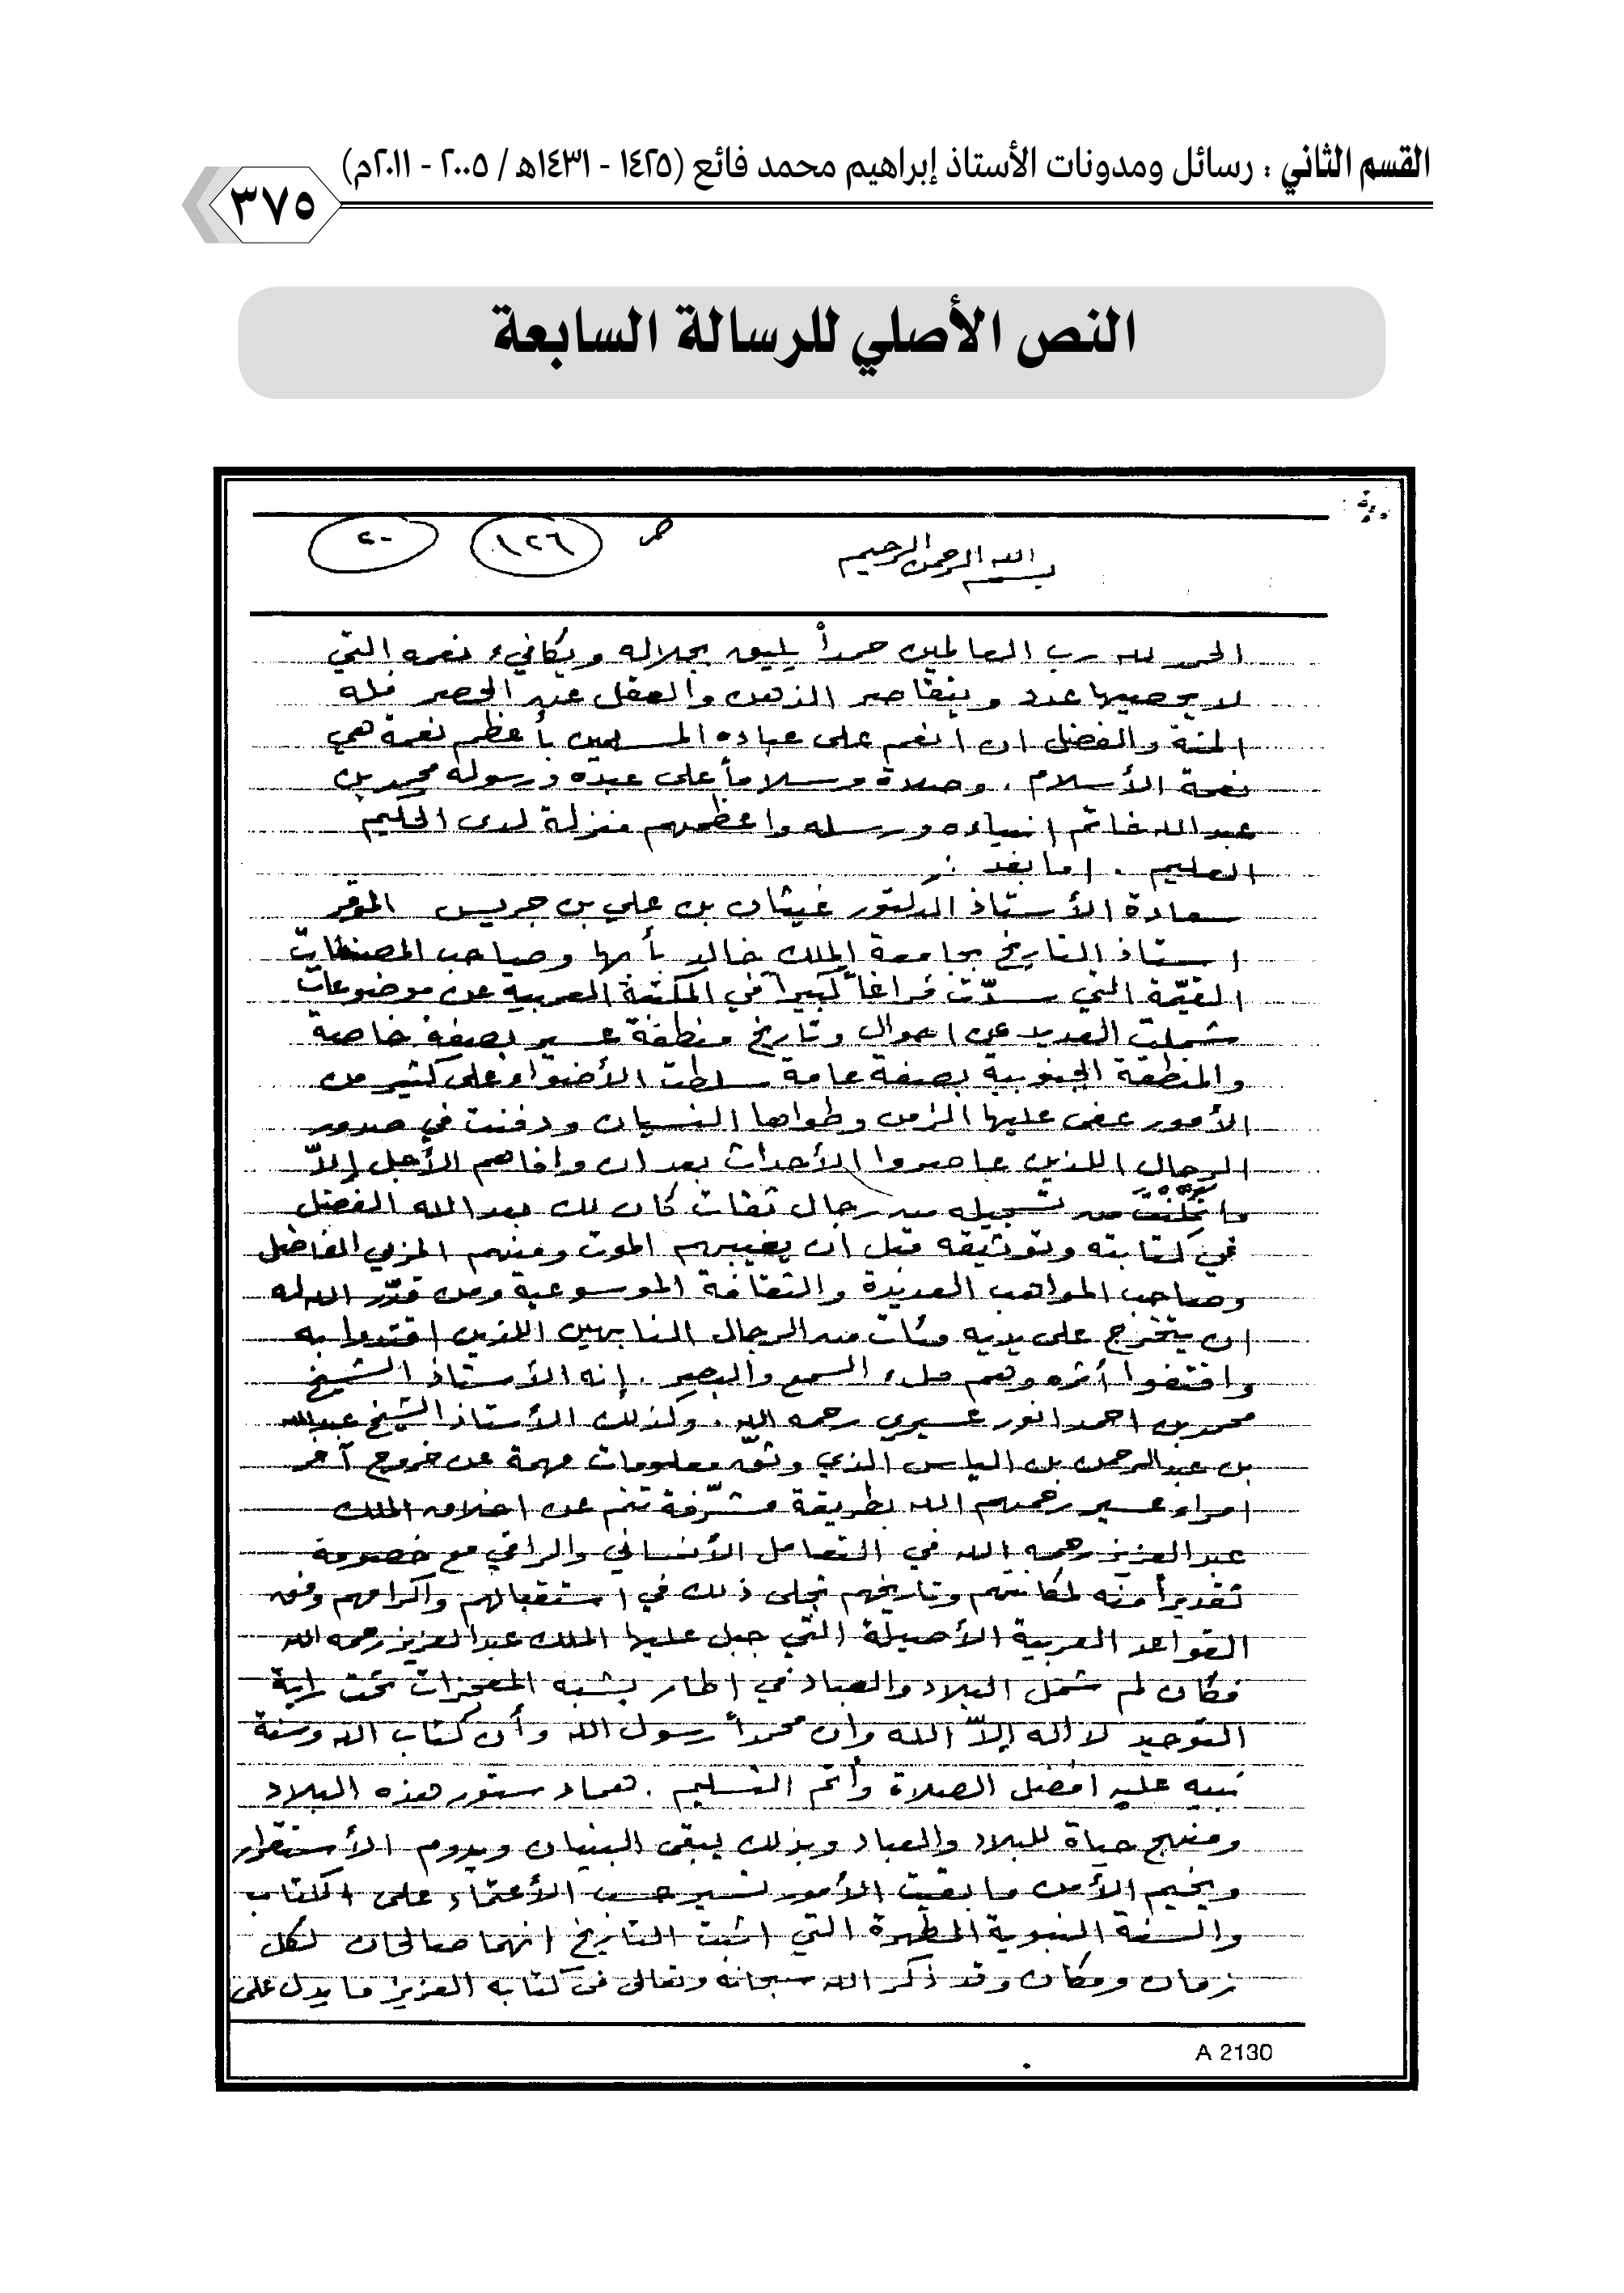 القسم الثاني : رسائل ومدونات الأستاذ إبراهيم محمد فائع (١٤٢٥ - ١٤٣١هـ / ٢٠٠٥ - ٢٠١١م)
٣٧٥
النص الأصلي للرسالة السابعة
بسم الله الرحمن الرحيم
ص ١٢٦ ٢٠
الحمد لله رب العالمين حمداً يليق بجلاله ويكافيء نعمه التي
لا يحصيها عدد ويتقاصر الذهن والعقل عند الحصر فله
المنة والفضل ان انعم على عباده المسلمين بأعظم نعمة هي
نعمة الأسلام . وصلاة وسلاماً على عبده ورسوله محمد بن
عبد الله خاتم انبياءه ورسله واعظمهم منزلة لدى الحكيم
العليم . اما بعد :
سعادة الأستاذ الدكتور غيثان بن علي بن جريس الموقر
استاذ التاريخ بجامعة الملك خالد بأبها وصاحب المصنفات
القيّمة التي سدّت فراغاً كبيراً في المكتبة العربية عن موضوعات
شملت العديد عن احوال وتاريخ منطقة عسير بصفة خاصة
والمنطقة الجنوبية بصفة عامة سلطت الأضواء على كثير من
الأمور عفى عليها الزمن وطواها النسيان ودفنت في صدور
الرجال اللذين عاصروا الأحداث بعد ان وافاهم الأجل إلاّ
ما تمكنت من تسجيله من رجال ثقات كان لك بعد الله الفضل
في كتابته وتوثيقه قبل ان يغيبهم الموت ومنهم المربي الفاضل
وصاحب المواهب العديدة والثقافة الموسوعية ومن قدّر الله له
ان يتخرج على يديه مئات من الرجال النابهين اللذين اقتدوا به
واقتفوا أثره وهم ملء السمع والبصر . إنه الأستاذ الشيخ
محمد بن احمد انور عسيري رحمه الله . وكذلك الأستاذ الشيخ عبدالله
بن عبدالرحمن بن الياس الذي وثق معلومات مهمة عن خروج آخر
امراء عسير رحمهم الله بطريقة مشرّفة تنم عن اخلاق الملك
عبدالعزيز رحمه الله في التعامل الأنساني والراقي مع خصومه
تقديراً منه لمكانتهم وتاريخهم تجلى ذلك في استقبالهم واكرامهم وفق
القواعد العربية الأصيلة التي جبل عليها الملك عبدالعزيز رحمه الله
فكان لم شمل البلاد والعباد في اطار يشبه المعجزات تحت راية
التوحيد لا اله إلاّ الله وان محمداً رسول الله وأن كتاب الله وسنة
نبيه عليه افضل الصلاة وأتم التسليم . هما دستور هذه البلاد
ومنهج حياة للبلاد والعباد وبذلك يبقى البنيان ويدوم الأستقرار
ويخيم الأمن ما بقيت الأمور تسير حسب الأعتماد على الكتاب
والسنة النبوية المطهرة التي اثبت التاريخ انهما صالحان لكل
زمان ومكان وقد ذكر الله سبحانه وتعالى في كتابه العزيز ما يدل على
A 2130